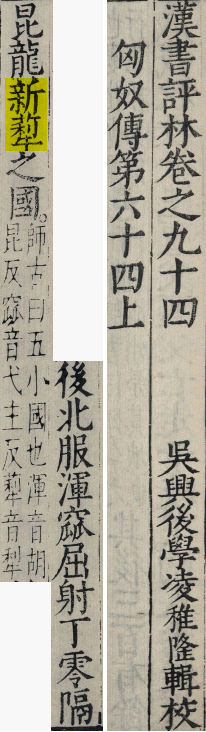 漢書評林卷之九十四
吳興後學凌稚隆輯校
匈奴傳第六十四上
後北服渾窳屈射丁零隔
昆龍新犂之國。
師古曰五小國也渾音胡
昆反窳音弋主反犂音犂